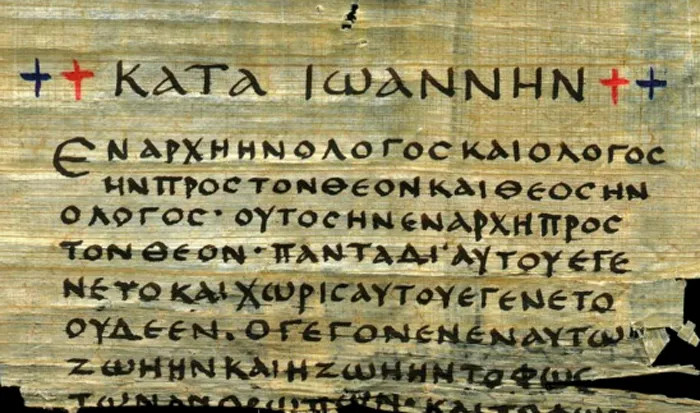 ++ ΚΑΤΑ ΙΩΑΝΝΗΝ ++
ΕΝΑΡΧΗΗΝΟΛΟΓΟϹΚΑΙΟΛΟΓΟϹ
ΗΝΠΡΟϹΤΟΝΘΕΟΝΚΑΙΘΕΟϹΗΝ
ΟΛΟΓΟϹ· ΟΥΤΟϹΗΝΕΝΑΡΧΗΠΡΟϹ
ΤΟΝΘΕΟΝ· ΠΑΝΤΑΔΙ'ΑΥΤΟΥΕΓΕ
ΝΕΤΟΚΑΙΧΩΡΙϹΑΥΤΟΥΕΓΕΝΕΤΟ
ΟΥΔΕΕΝ. ΟΓΕΓΟΝΕΝΕΝΑΥΤΩ
ΖΩΗΗΝΚΑΙΗΖΩΗΗΝΤΟΦΩϹ
ΤΩΝΑΝΘΡΩΠΩΝ· ΚΑΙΤΟ